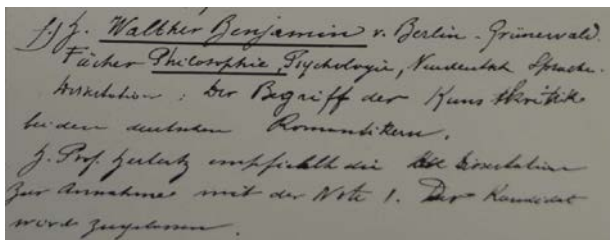 f.) H. Walther Benjamin v. Berlin-Grünewald.
Fächer Philosophie, Psychologie, Neudeutsch Sprache.
Dissertation: Der Begriff der Kunstkritik
bei den deutschen Romantikern.
H. Prof. Herbertz empfiehlt die Dissertation
zur Annahme mit der Note 1. Der Kandidat
wird zugelassen.